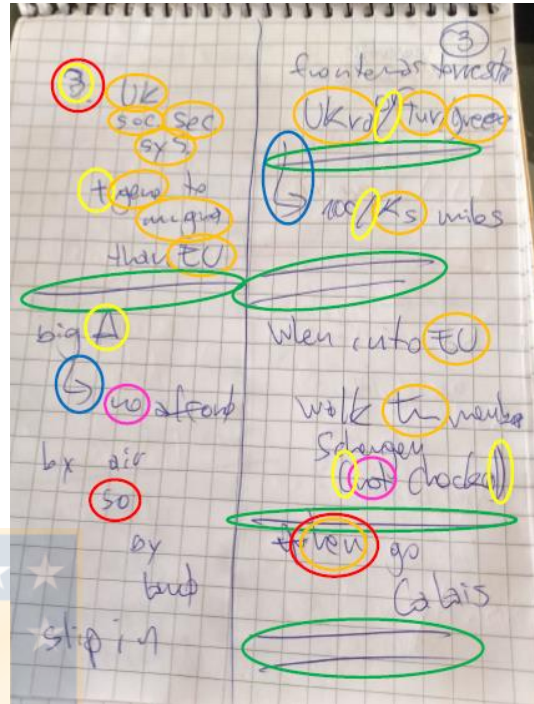 3. UK
soc sec
sys
+ gens to
migra
than EU
big A
no afford
by air
so
by
land
slip in
3
UKra
tur Greec
100s/Ks miles
when into EU
walk thr member
Schengen
(not checked)
then go
Calais